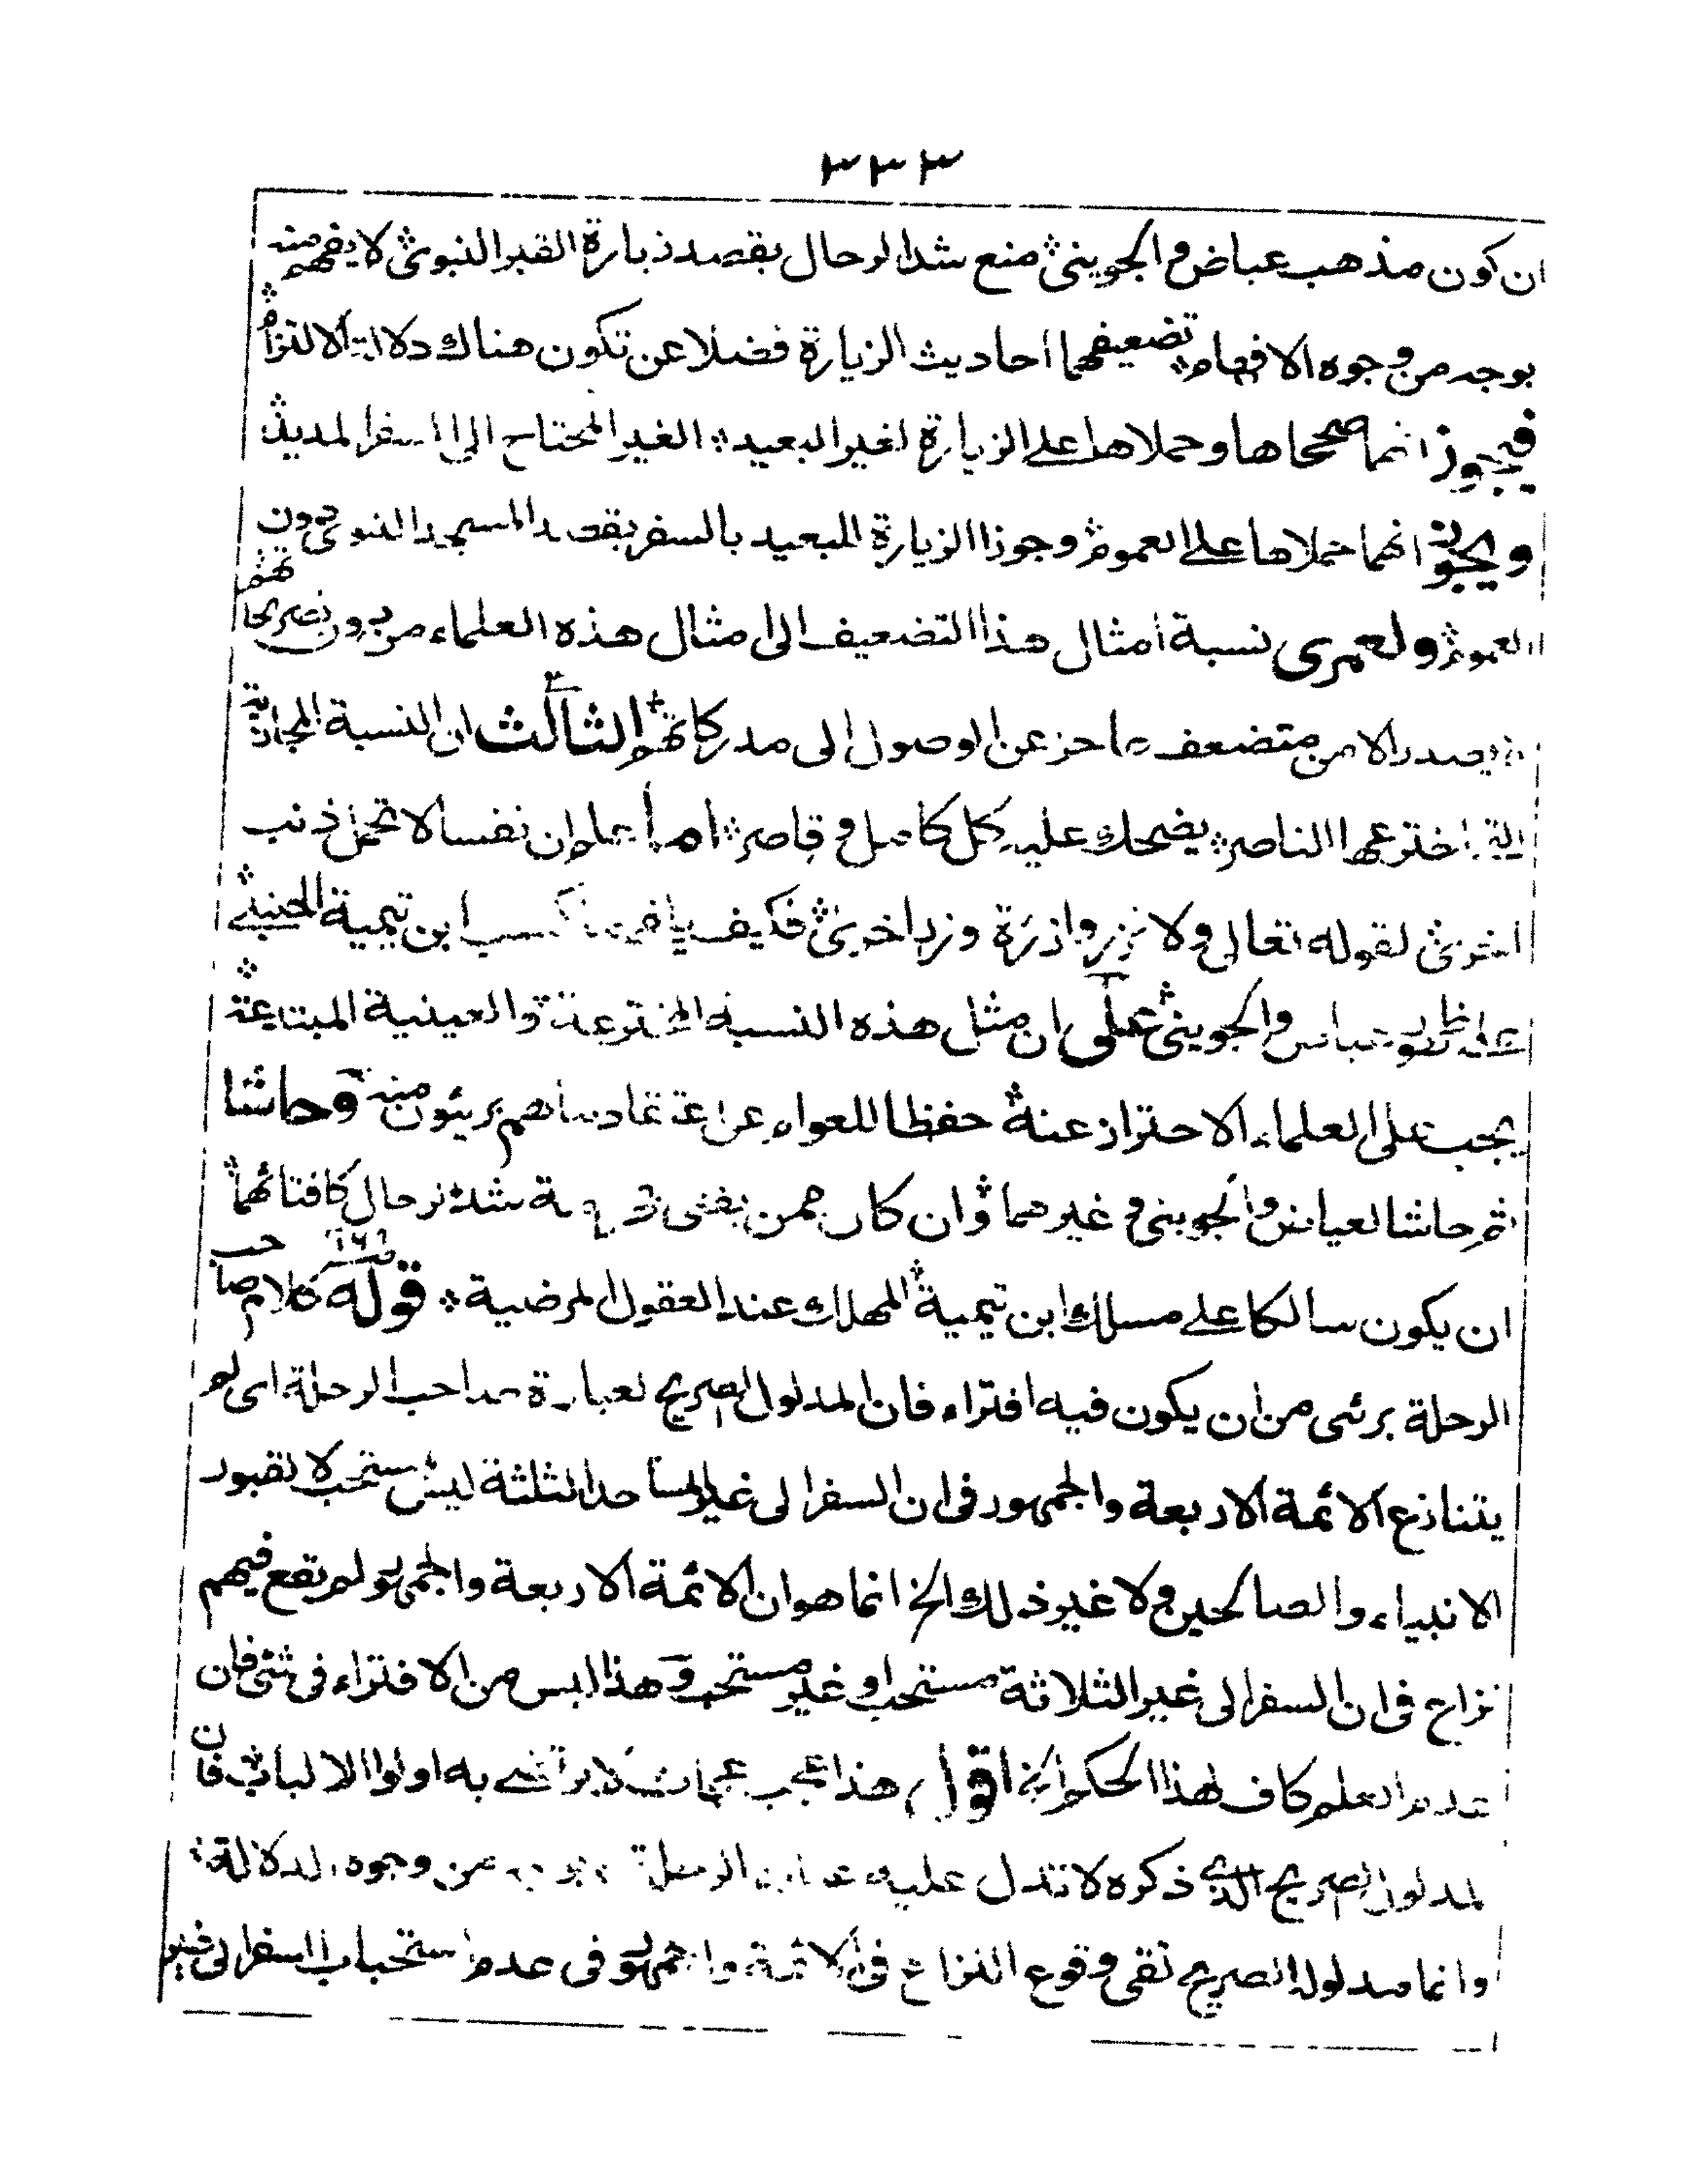 ٣٣٣
ان كون مذهب عياض والجويني منع شد الرحال بقصد زيارة القبر النبوي لا يفهم منه
بوجه من وجوه الافهام تضعيفهما احاديث الزيارة فضلا عن تكون هناك دلالة الالتزام
فيجوز انهما صححاها وحملاها على الزيارة لغير البعيد الغير المحتاج الى السفر المديد
ويجوز انهما حملاها على العموم وجوزا الزيارة للبعيد بالسفر بقصد المسجد النبوي دون
العموم ولعمري نسبة امثال هذا التضعيف الى امثال هذه العلماء من دون تصريحاتهم
لا يصدر الا من متضعف عاجز عن الوصول الى مدركاتهم الثالث ان النسبة المجازية
التي اخترعها الناصر يضحك عليه كل كامل وقاصر اما علم ان نفسا لا تحمل ذنب
اخرى لقوله تعالى ولا تزر وازرة وزر اخرى فكيف ابن تيمية الحنبلي
على عياض والجويني على ان مثل هذه النسبة المخترعة والعينية المبتدعة
يجب على العلماء الاحتراز عنه حفظا للعوام عن اعتقاد ما هم بريئون منه وحاشا
ثم حاشا لعياض والجويني وغيرهما وان كان ممن يفتى شد الرحال كافتائهما
ان يكون سالكا على مسلك ابن تيمية المهلك عند العقول المرضية قوله ١٦١ كلام صاحب
الرحلة برئى من ان يكون فيه افتراء فان المدلول الصريح لعبارة صاحب الرحلة اى لم
يتنازع الائمة الاربعة والجمهور في ان السفر الى غير المساجد الثلثة ليس بمستحب لا لقبور
الانبياء والصالحين ولا غير ذلك الخ انما هو ان الائمة الاربعة والجمهور لم يقع فيهم
نزاع في ان السفر الى غير الثلاثة مستحب او غير مستحب وهذا ليس من الافتراء في شئ فان
عدم العلم كاف لهذا الحكم الخ اقول هذا عجب عجاب لا يرتضى به اولوا الالباب فان
المدلول الصريح الذي ذكره لا تدل عليه الرحلة بوجه من وجوه الدلالة
وانما مدلوله الصريح نفى وقوع النزاع في الائمة والجمهور في عدم استحباب السفر الى غير